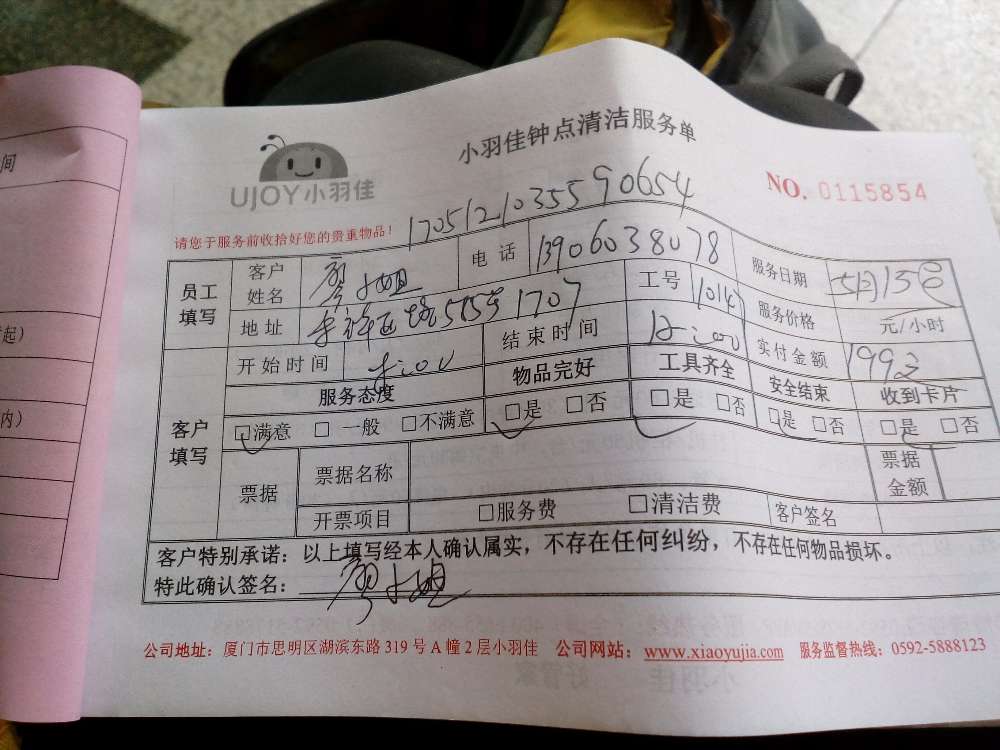 间
起)
内)
小羽佳钟点清洁服务单
UJOY小羽佳
NO. 0115854
1705121035590654
请您于服务前收拾好您的贵重物品!
员工填写 客户姓名 廖小姐 电话 13906038078 服务日期 5月15日
地址 515号1707 工号 1014 服务价格 元/小时
开始时间 结束时间 实付金额 199.2
客户填写 服务态度 物品完好 工具齐全 安全结束 收到卡片
□满意 □一般 □不满意 □是 □否 □是 □否 □是 □否 □是 □否
票据 票据名称 票据金额
开票项目 □服务费 □清洁费 客户签名
客户特别承诺:以上填写经本人确认属实,不存在任何纠纷,不存在任何物品损坏。
特此确认签名: 廖小姐
公司地址:厦门市思明区湖滨东路319号A幢2层小羽佳 公司网站:www.xiaoyujia.com 服务监督热线:0592-5888123